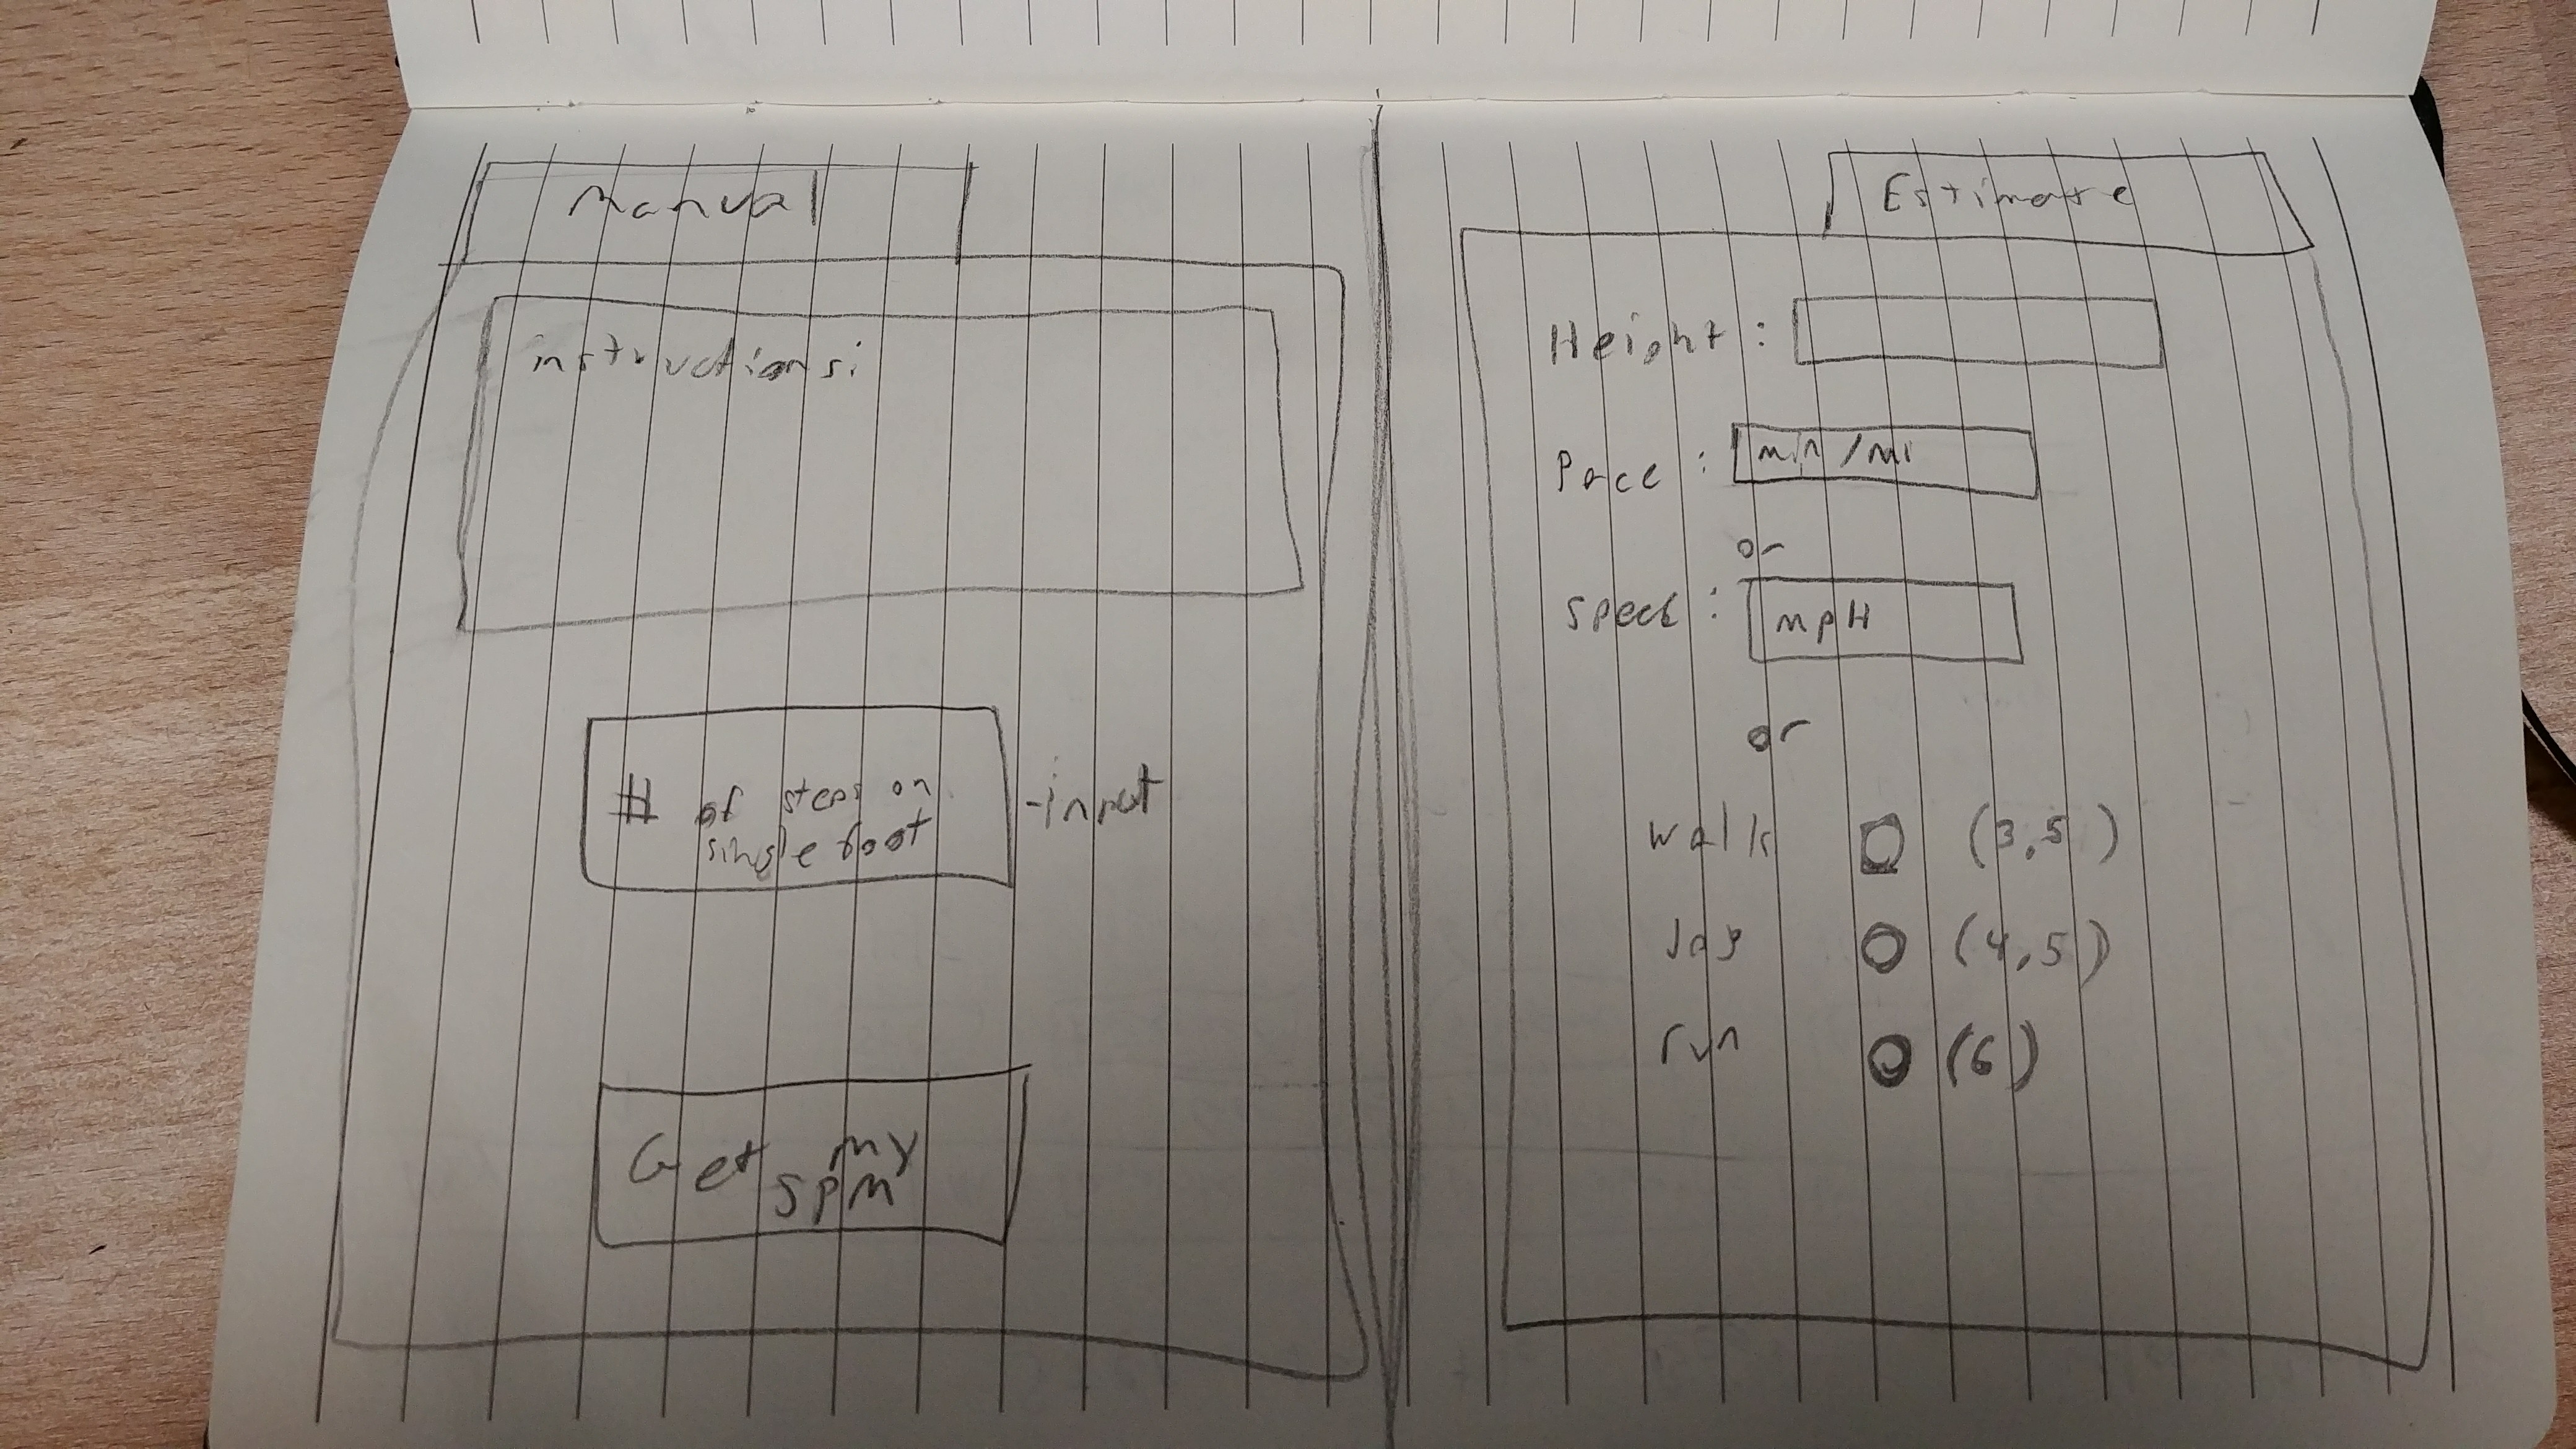 Manual
instructions:
# of steps on
single foot
-input
Get my
SPM
Estimate
Height :
Pace : min/mi
or
Speed : mpH
or
walk (3.5)
Jog (4.5)
run (6)